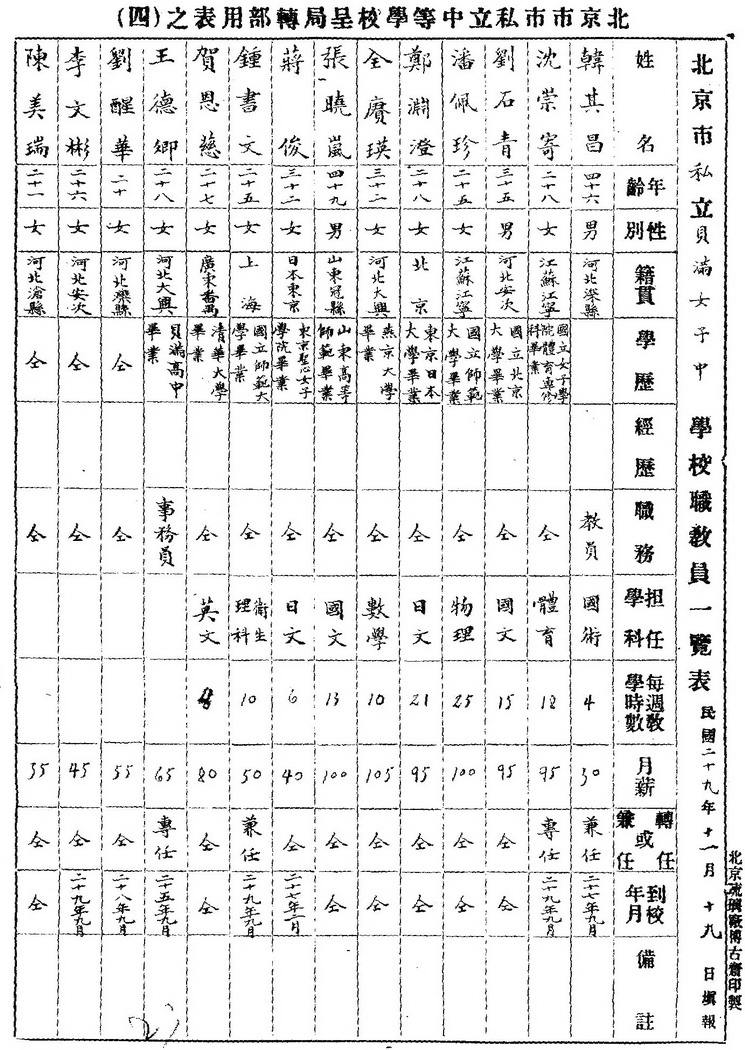 北京市市私立中等學校呈局轉部用表之(四)
北京市私立貝滿女子中學校職教員一覽表 民國二十九年十一月十九日塡報
姓名 年齡 性別 籍貫 學歷 經歷 職務 擔任學科 每週教學時數 月薪 轉或兼任任 到校年月 備註
韓其昌 四十六 男 河北深縣 教員 國術 4 30 兼任 二十七年九月
沈崇寄 二十八 女 江蘇江寧 國立女子學院體育專修科畢業 仝 體育 18 95 專任 二十九年九月
劉石青 三十五 男 河北安次 國立北京大學畢業 仝 國文 15 95 仝 仝
潘佩珍 二十五 女 江蘇江寧 國立師範大學畢業 仝 物理 25 100 仝 仝
鄭淵澄 二十八 女 北京 東京日本大學畢業 仝 日文 21 95 仝 仝
全賡瑛 三十二 女 河北大興 燕京大學畢業 仝 數學 10 105 仝 仝
張曉嵐 四十九 男 山東冠縣 山東高等師範畢業 仝 國文 13 100 仝 仝
蔣俊 三十二 女 日本東京 東京聖心女子學院畢業 仝 日文 6 40 仝 二十七年二月
鍾書文 二十五 女 上海 國立師範大學畢業 仝 衛生理科 10 50 兼任 二十九年九月
賀恩慈 二十七 女 廣東番禺 清華大學畢業 仝 英文 80 仝 仝
王德卿 二十八 女 河北大興 貝滿高中畢業 事務員 65 專任 二十五年九月
劉醒華 二十 女 河北灤縣 仝 仝 55 仝 二十八年九月
李文彬 二十六 女 河北安次 仝 仝 45 仝 二十九年九月
陳美瑞 二十一 女 河北滄縣 仝 仝 35 仝 仝
北京琉璃廠博古齋印製